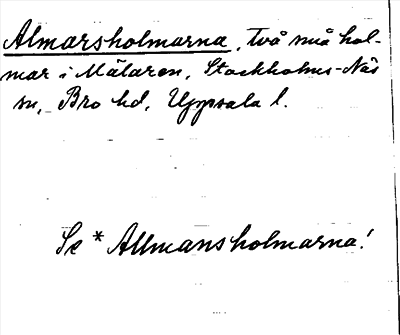 Almarsholmarna, två små hol-
mar i Mälaren, Stockholms-Näs
sn, Bro hd, Uppsala l.
Se * Allmansholmarna!